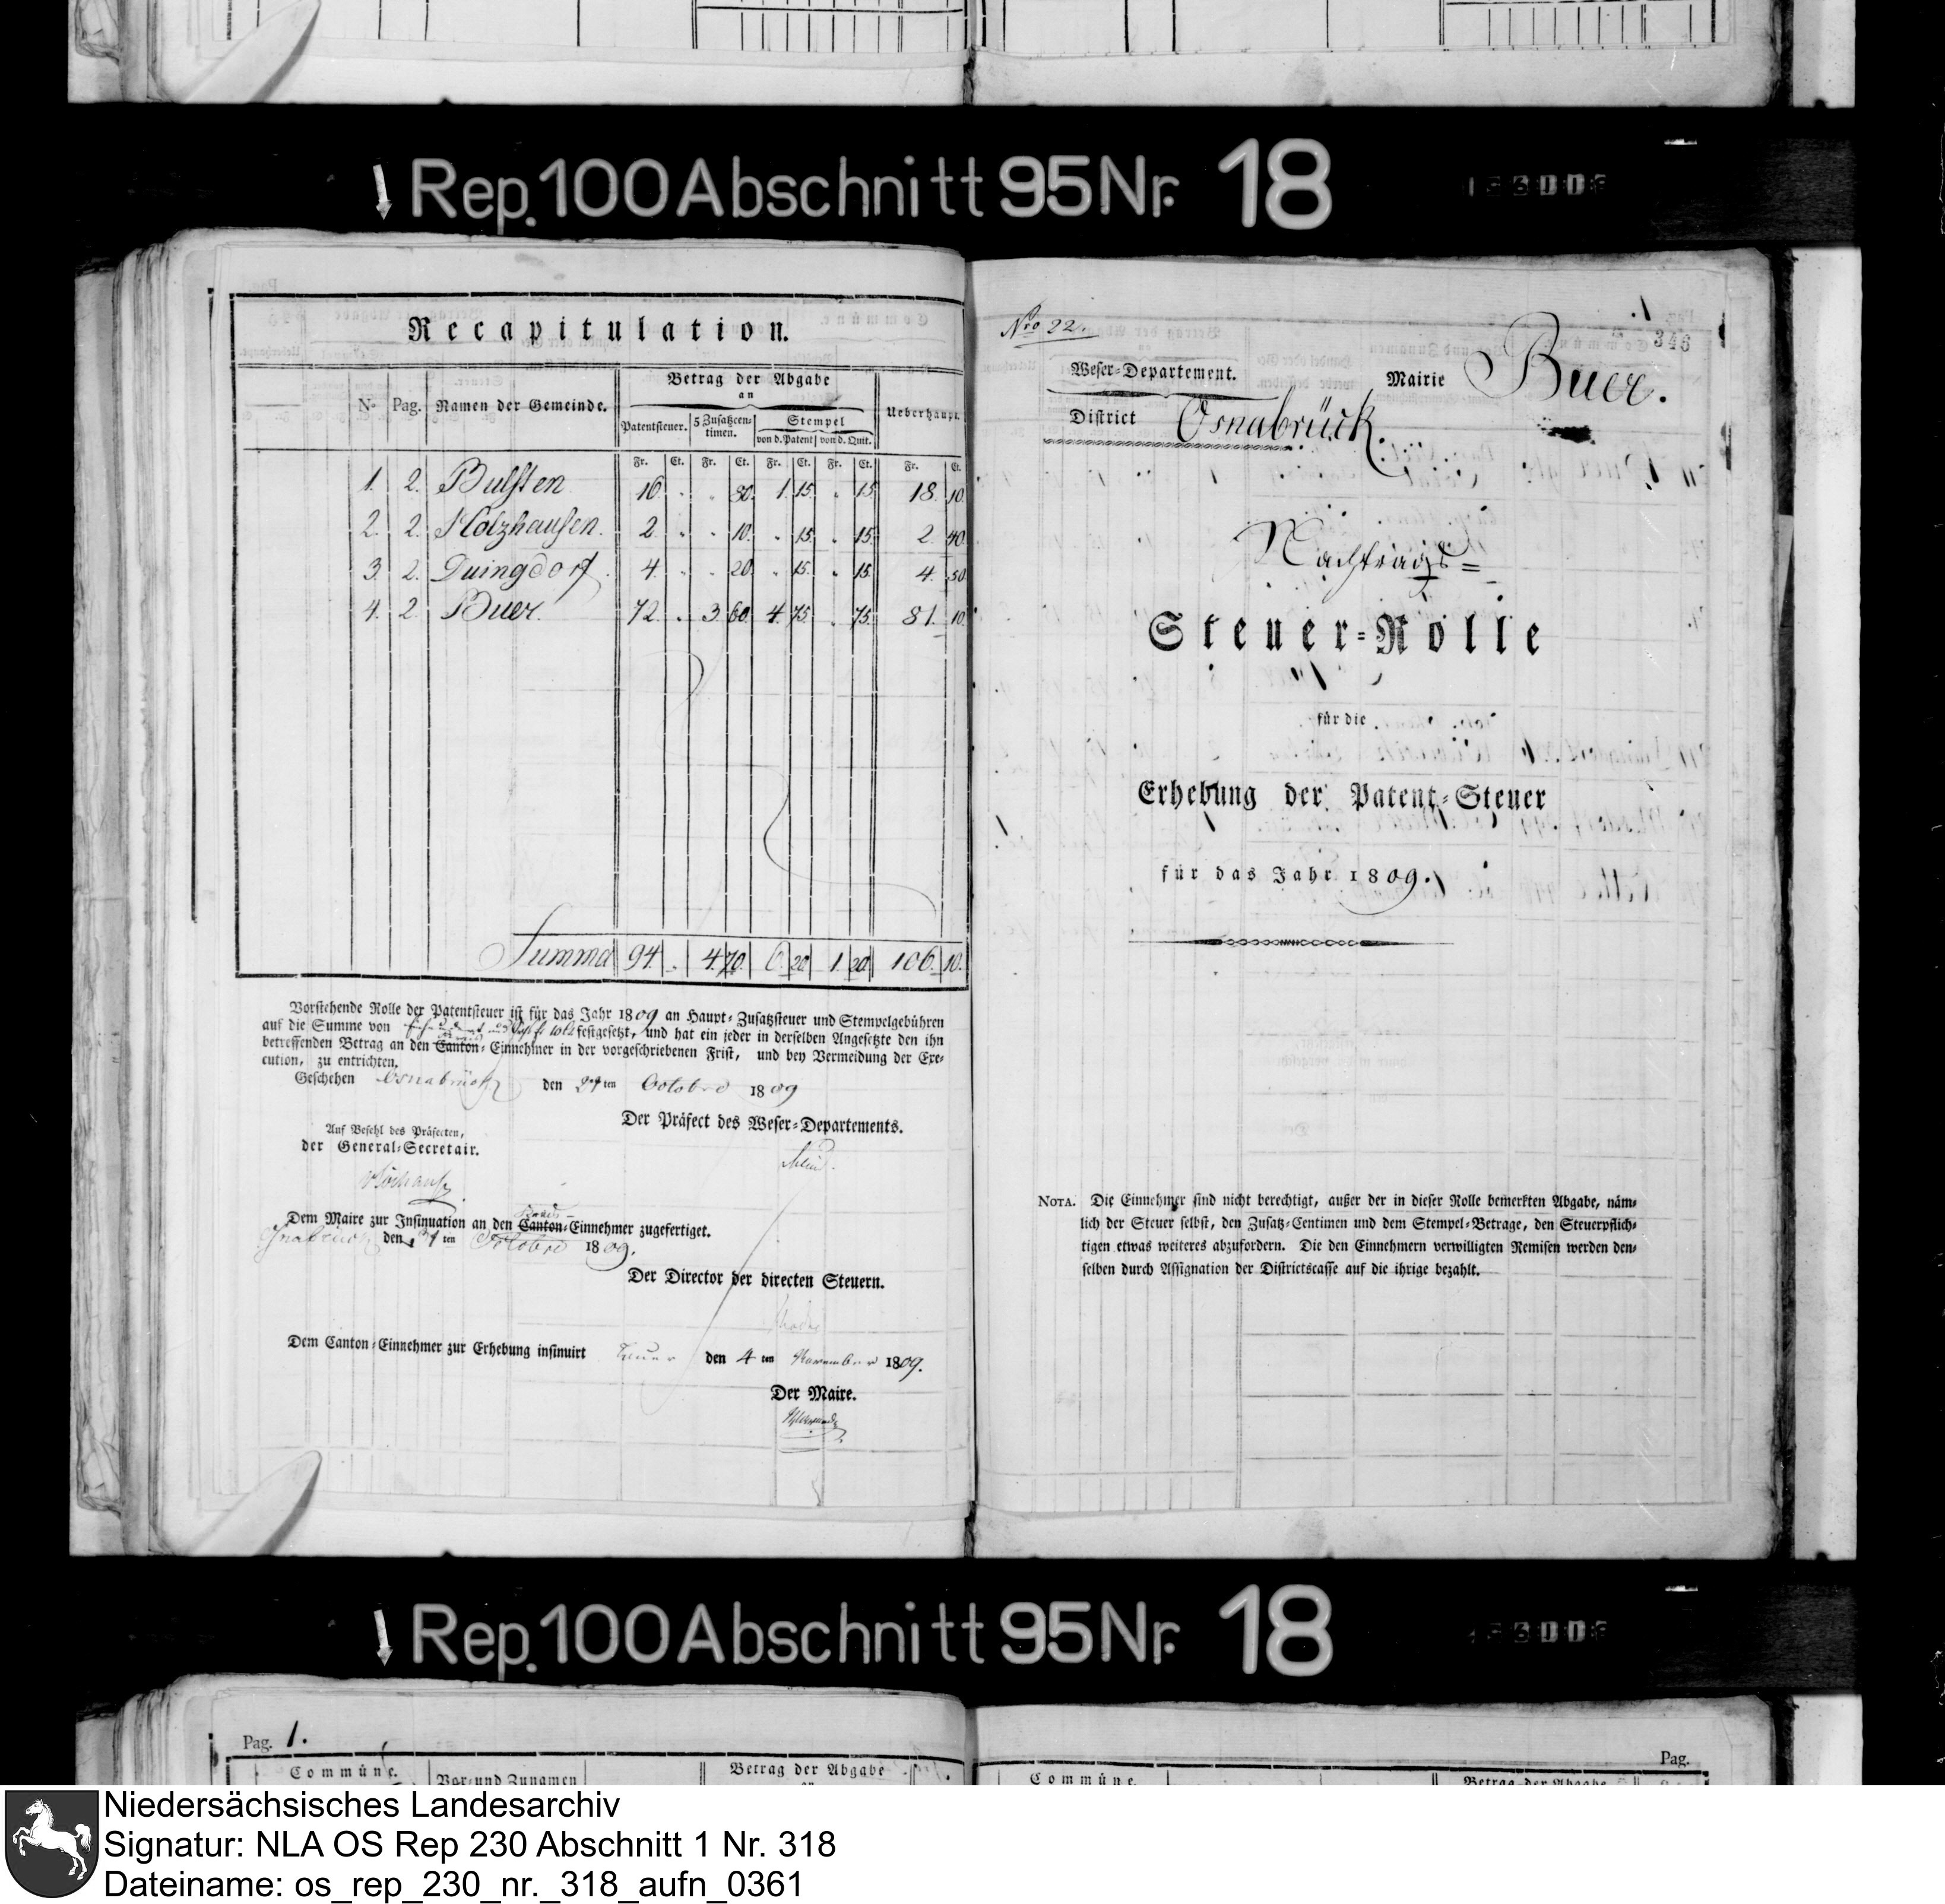 Rep. 100 Abschnitt 95 Nr. 18
Recapitulation.
No Pag. Namen der Gemeinde. Betrag der Abgabe an Ueberhaupt.
Patentsteuer. 5 Zusatzcentimen. Stempel
von d. Patent von d. Quit.
Fr. Ct. Fr. Ct. Fr. Ct. Fr. Ct. Fr. Ct.
1. 2. Bulsten 16 . . 80. 1. 15. . 15. 18. 10.
2. 2. Holzhausen. 2. . . 10. . 15. . 15. 2. 40.
3. 2. Duingdorf. 4. . . 20. . 15. . 15. 4. 50.
4. 2. Buer. 72. . 3. 60. 4. 75. . 75. 81. 10.
Summa 94. . 4. 70. 6. 20. 1. 20. 106. 10.
Vorstehende Rolle der Patentsteuer ist für das Jahr 1809 an Haupt- Zusatzsteuer und Stempelgebühren
auf die Summe von festgesetzt, und hat ein jeder in derselben Angesetzte den ihn
betreffenden Betrag an den Canton-Einnehmer in der vorgeschriebenen Frist, und bey Vermeidung der Exe-
cution, zu entrichten.
Geschehen Osnabrück den 27ten October 1809
Der Präfect des Weser-Departements.
Auf Befehl des Präfecten,
der General-Secretair.
Dem Maire zur Insinuation an den Canton-Einnehmer zugefertiget.
Osnabrück den ten October 1809.
Der Director der directen Steuern.
Dem Canton-Einnehmer zur Erhebung insinuirt den 4ten November 1809.
Der Maire.
Nro 22.
346
Weser-Departement.
Mairie Buer.
District Osnabrück.
Nachtrags=
Steuer-Rolle
für die
Erhebung der Patent-Steuer
für das Jahr 1809.
NOTA. Die Einnehmer sind nicht berechtigt, außer der in dieser Rolle bemerkten Abgabe, näm-
lich der Steuer selbst, den Zusatz-Centimen und dem Stempel-Betrage, den Steuerpflich-
tigen etwas weiteres abzufordern. Die den Einnehmern verwilligten Remisen werden den-
selben durch Assignation der Districtscasse auf die ihrige bezahlt.
Rep. 100 Abschnitt 95 Nr. 18
Pag. 1.
Commüne. Vor- und Zunamen Betrag der Abgabe
Pag.
Commüne. Betrag der Abgabe
Niedersächsisches Landesarchiv
Signatur: NLA OS Rep 230 Abschnitt 1 Nr. 318
Dateiname: os_rep_230_nr._318_aufn_0361